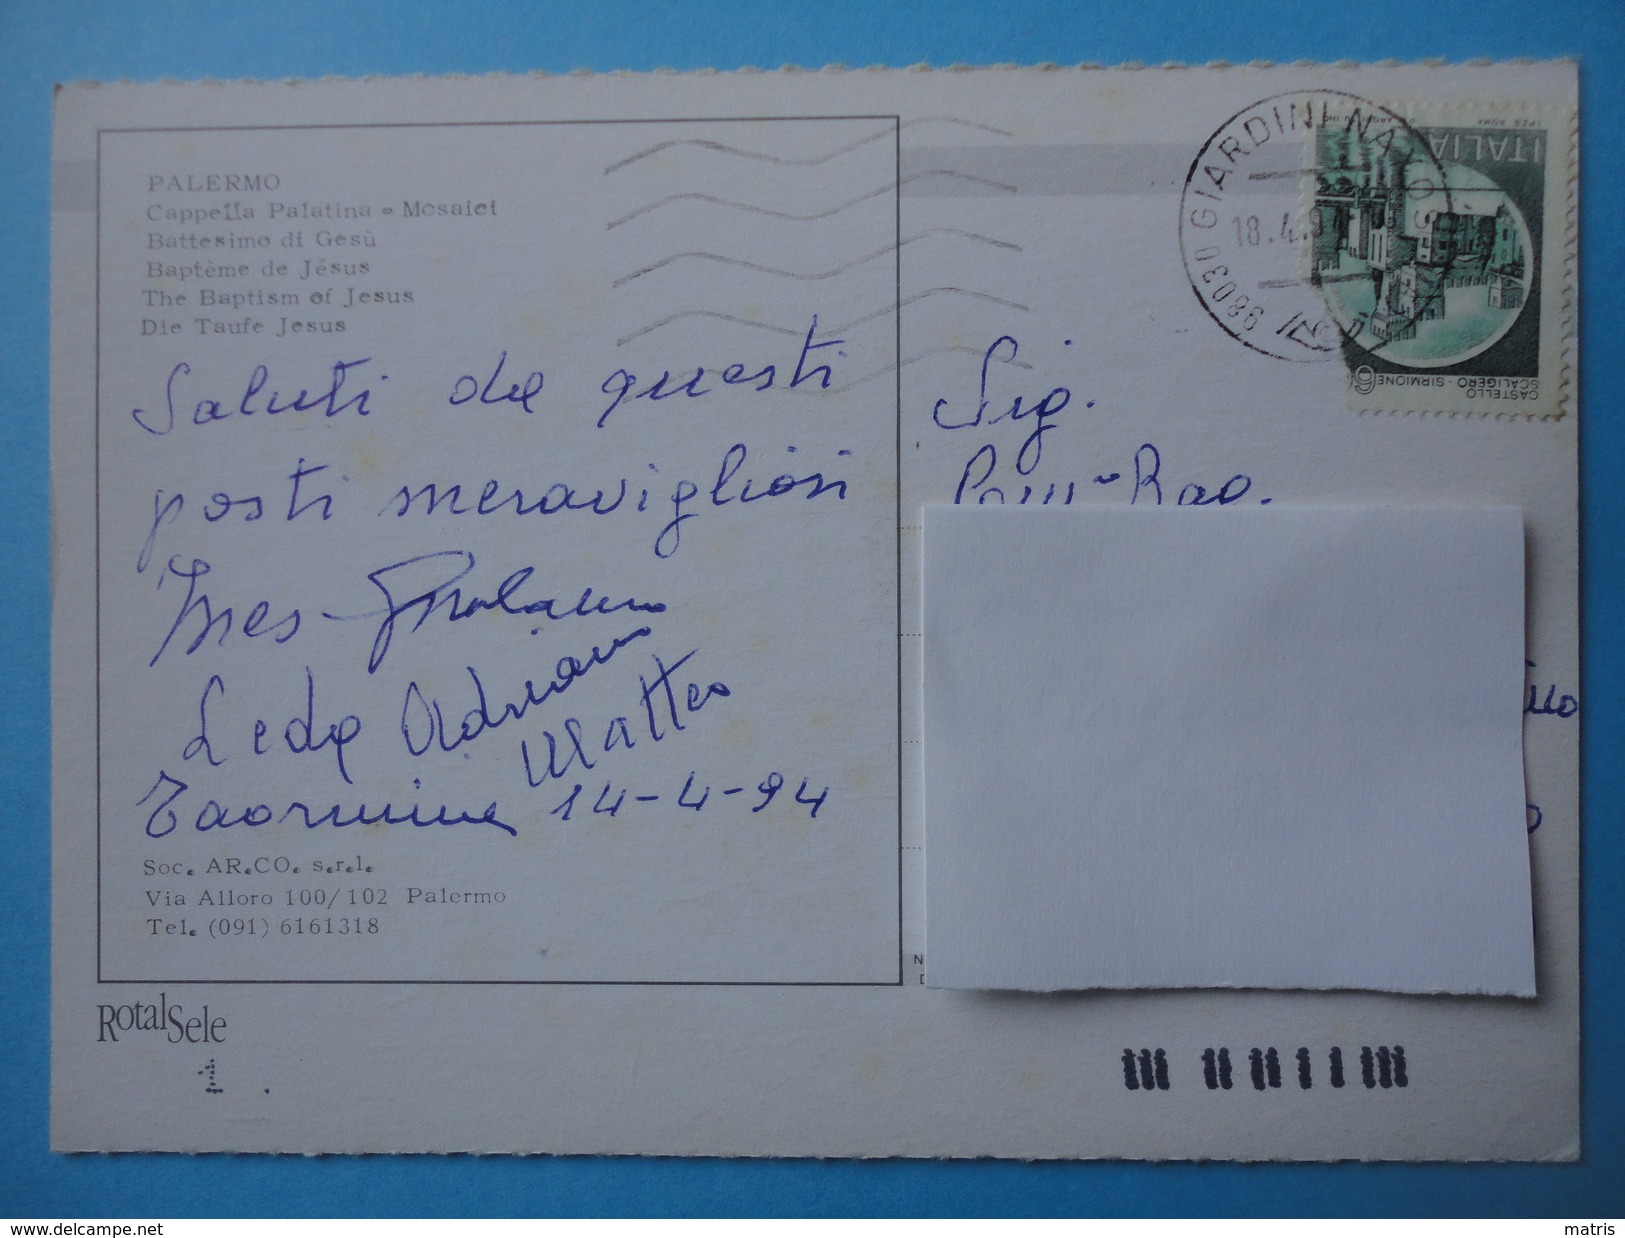 PALERMO
Cappella Palatina - Mosaici
Battesimo di Gesù
Baptème de Jésus
The Baptism of Jesus
Die Taufe Jesus
Saluti da questi
posti meravigliosi
Ines -
Leda Adriano
Matteo
Taormina 14-4-94
Soc. AR.CO. s.r.l.
Via Alloro 100/102 Palermo
Tel. (091) 6161318
RotalSele
1 .
98030 GIARDINI NAXOS
18.4.9
ITALIA
CASTELLO
SCALIGERO · SIRMIONE
Sig.
Rag.
delcampe.net
matris